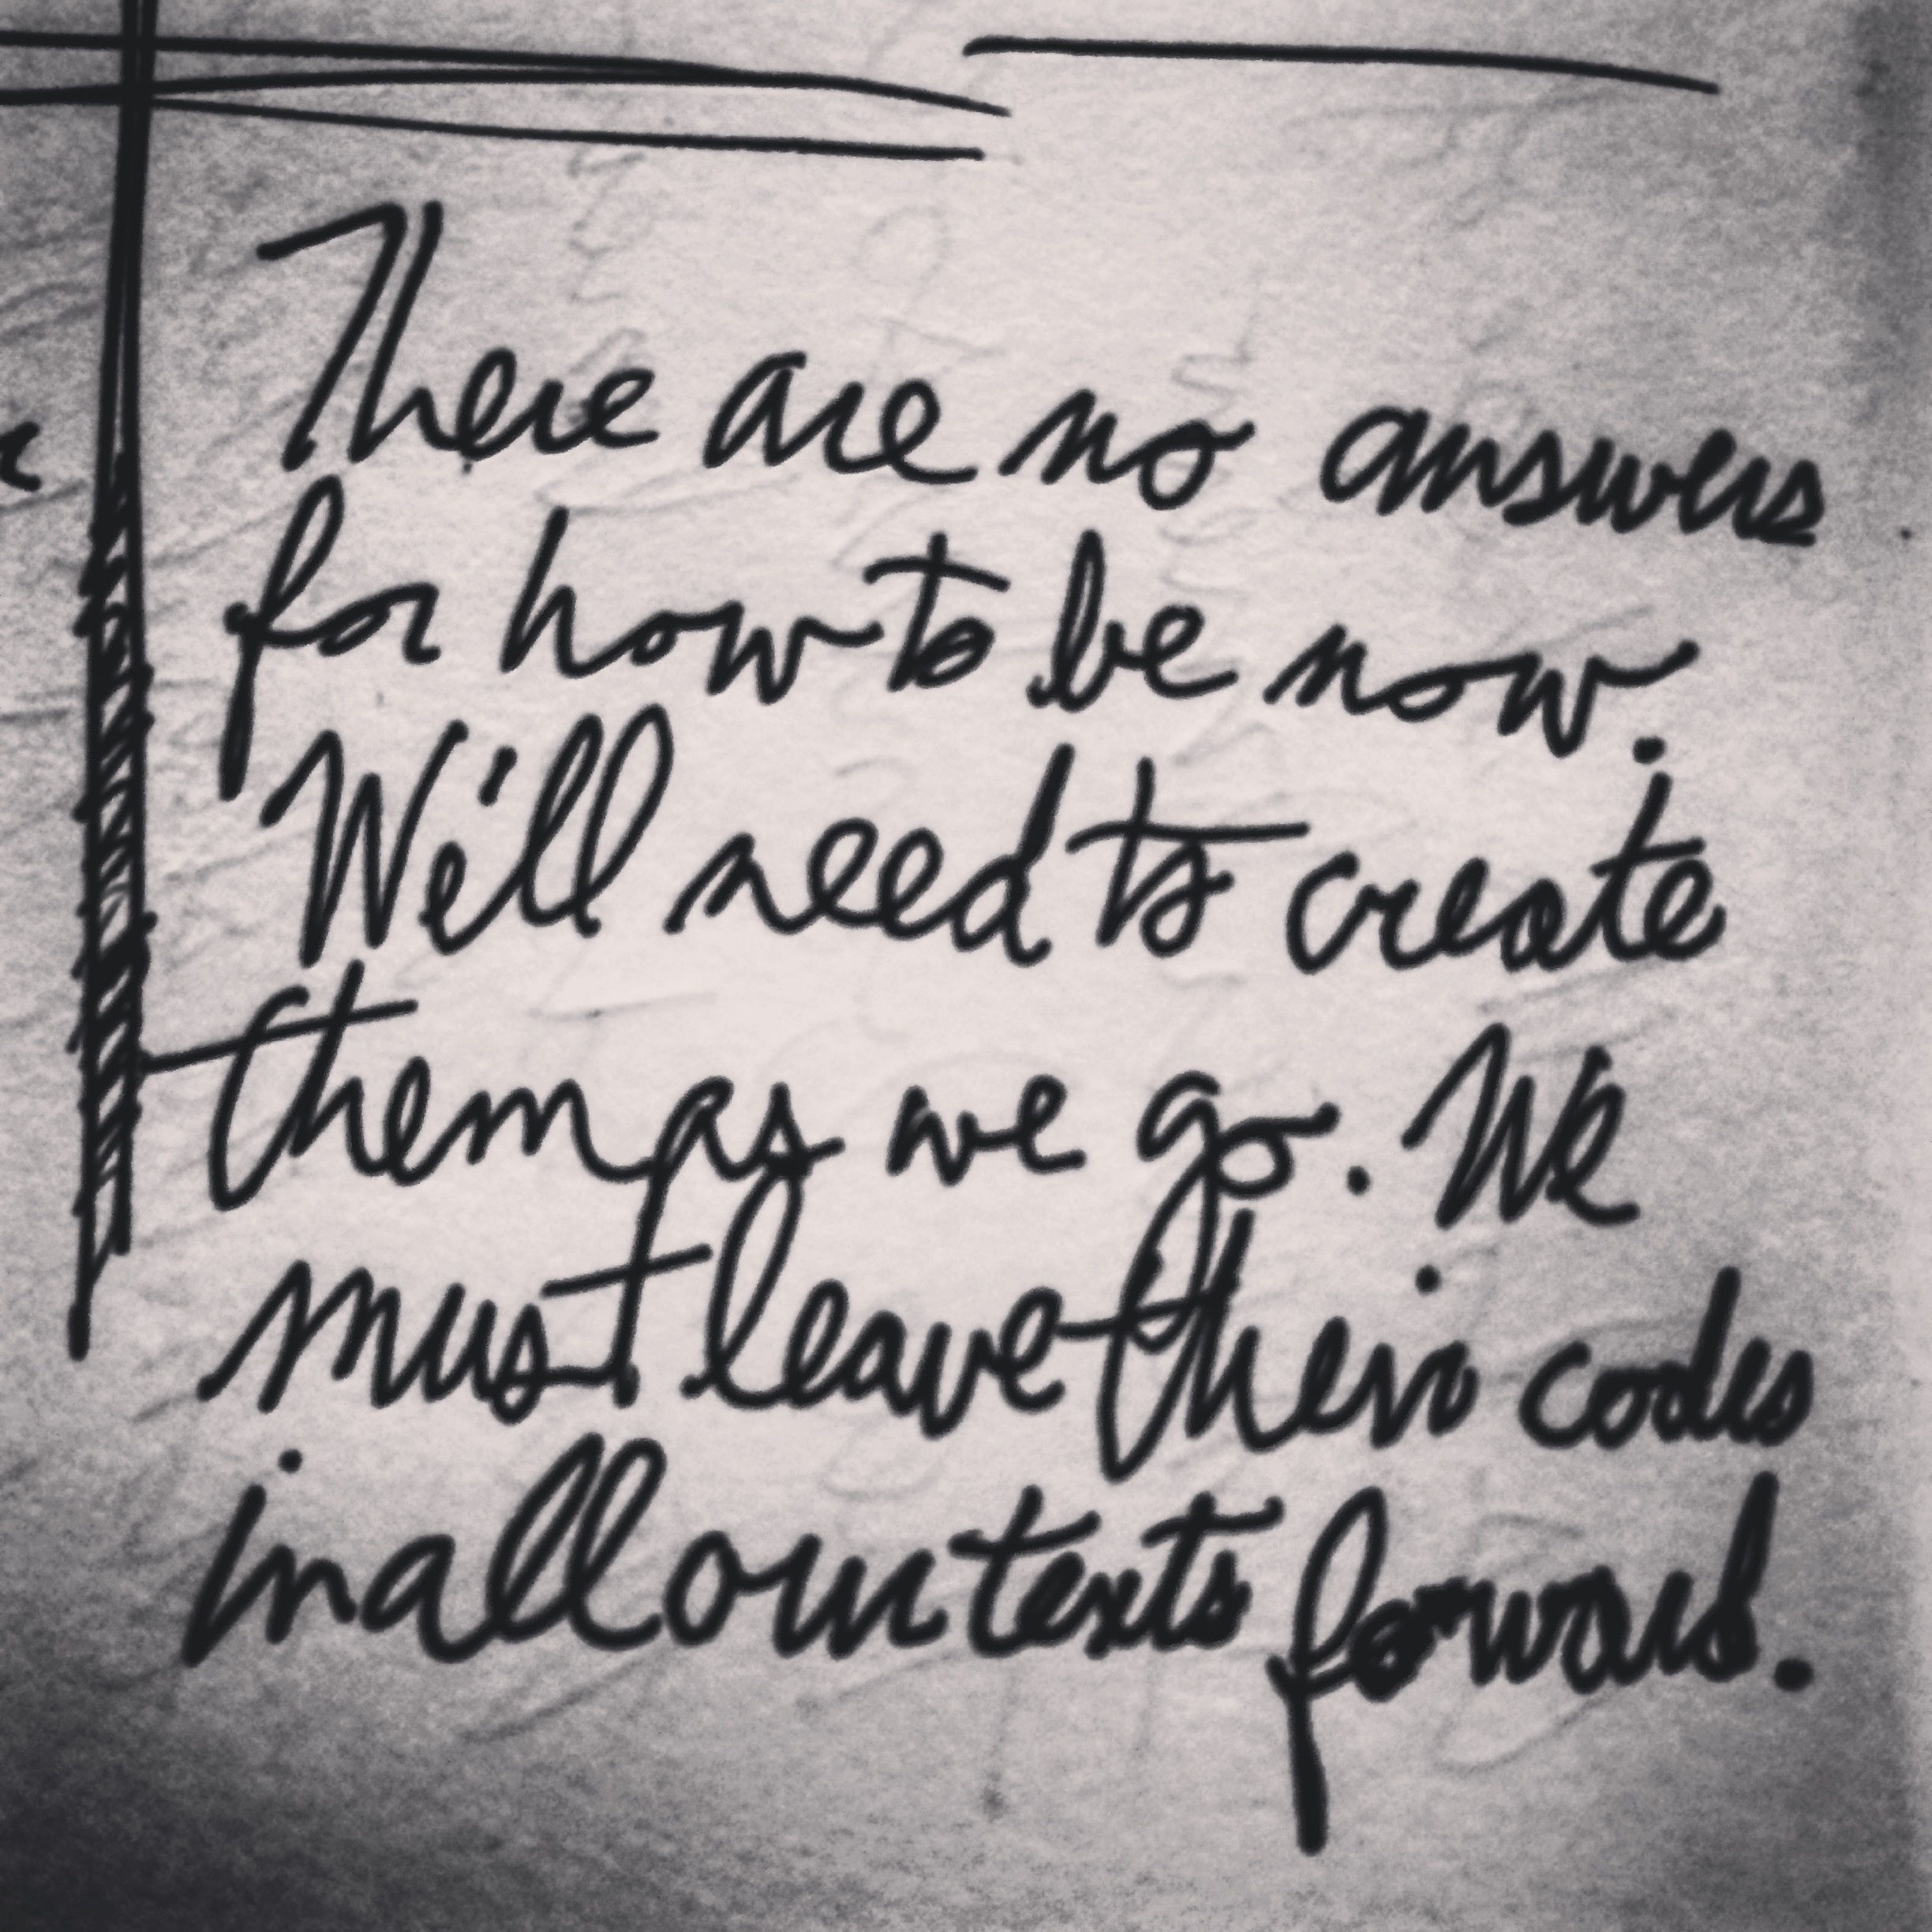 There are no answers
for how to be now.
We'll need to create
them as we go. We
must leave their codes
in all our texts forward.